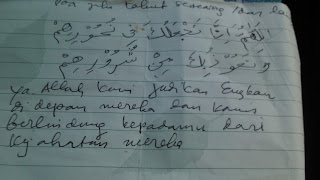 takut seorang
اَللّٰهُمَّ اِنَّا نَجْعَلُكَ فِى نُحُوْرِهِمْ
وَنَعُوْذُ بِكَ مِنْ شُرُوْرِهِمْ
Ya Allah kami jadikan Engkau
di depan mereka dan kami
berlindung kepadamu dari
Kejahatan mereka